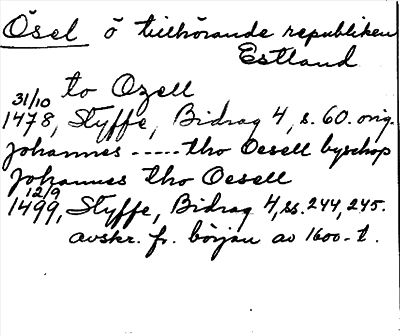 Ösel ö tillhörande republiken
Estland
to Ozell
31/10
1478, Styffe, Bidrag 4, s. 60. orig.
Johannes ----- tho Oesell byschop
Johannes tho Oesell
12/9
1499, Styffe, Bidrag 4, ss. 244, 245.
avskr. fr. början av 1600-t.